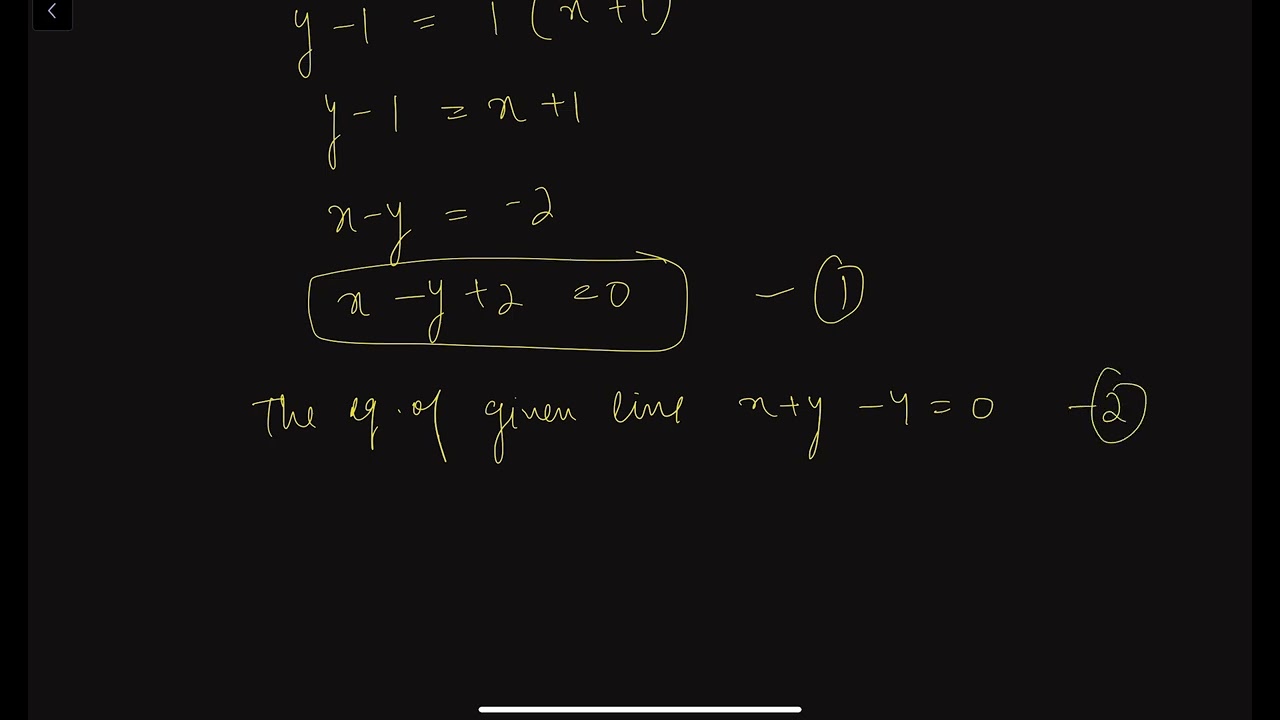 y - 1 = 1 (x + 1)
y - 1 = x + 1
x - y = -2
x - y + 2 = 0 - 1
The eq. of given line x + y - 4 = 0 - 2